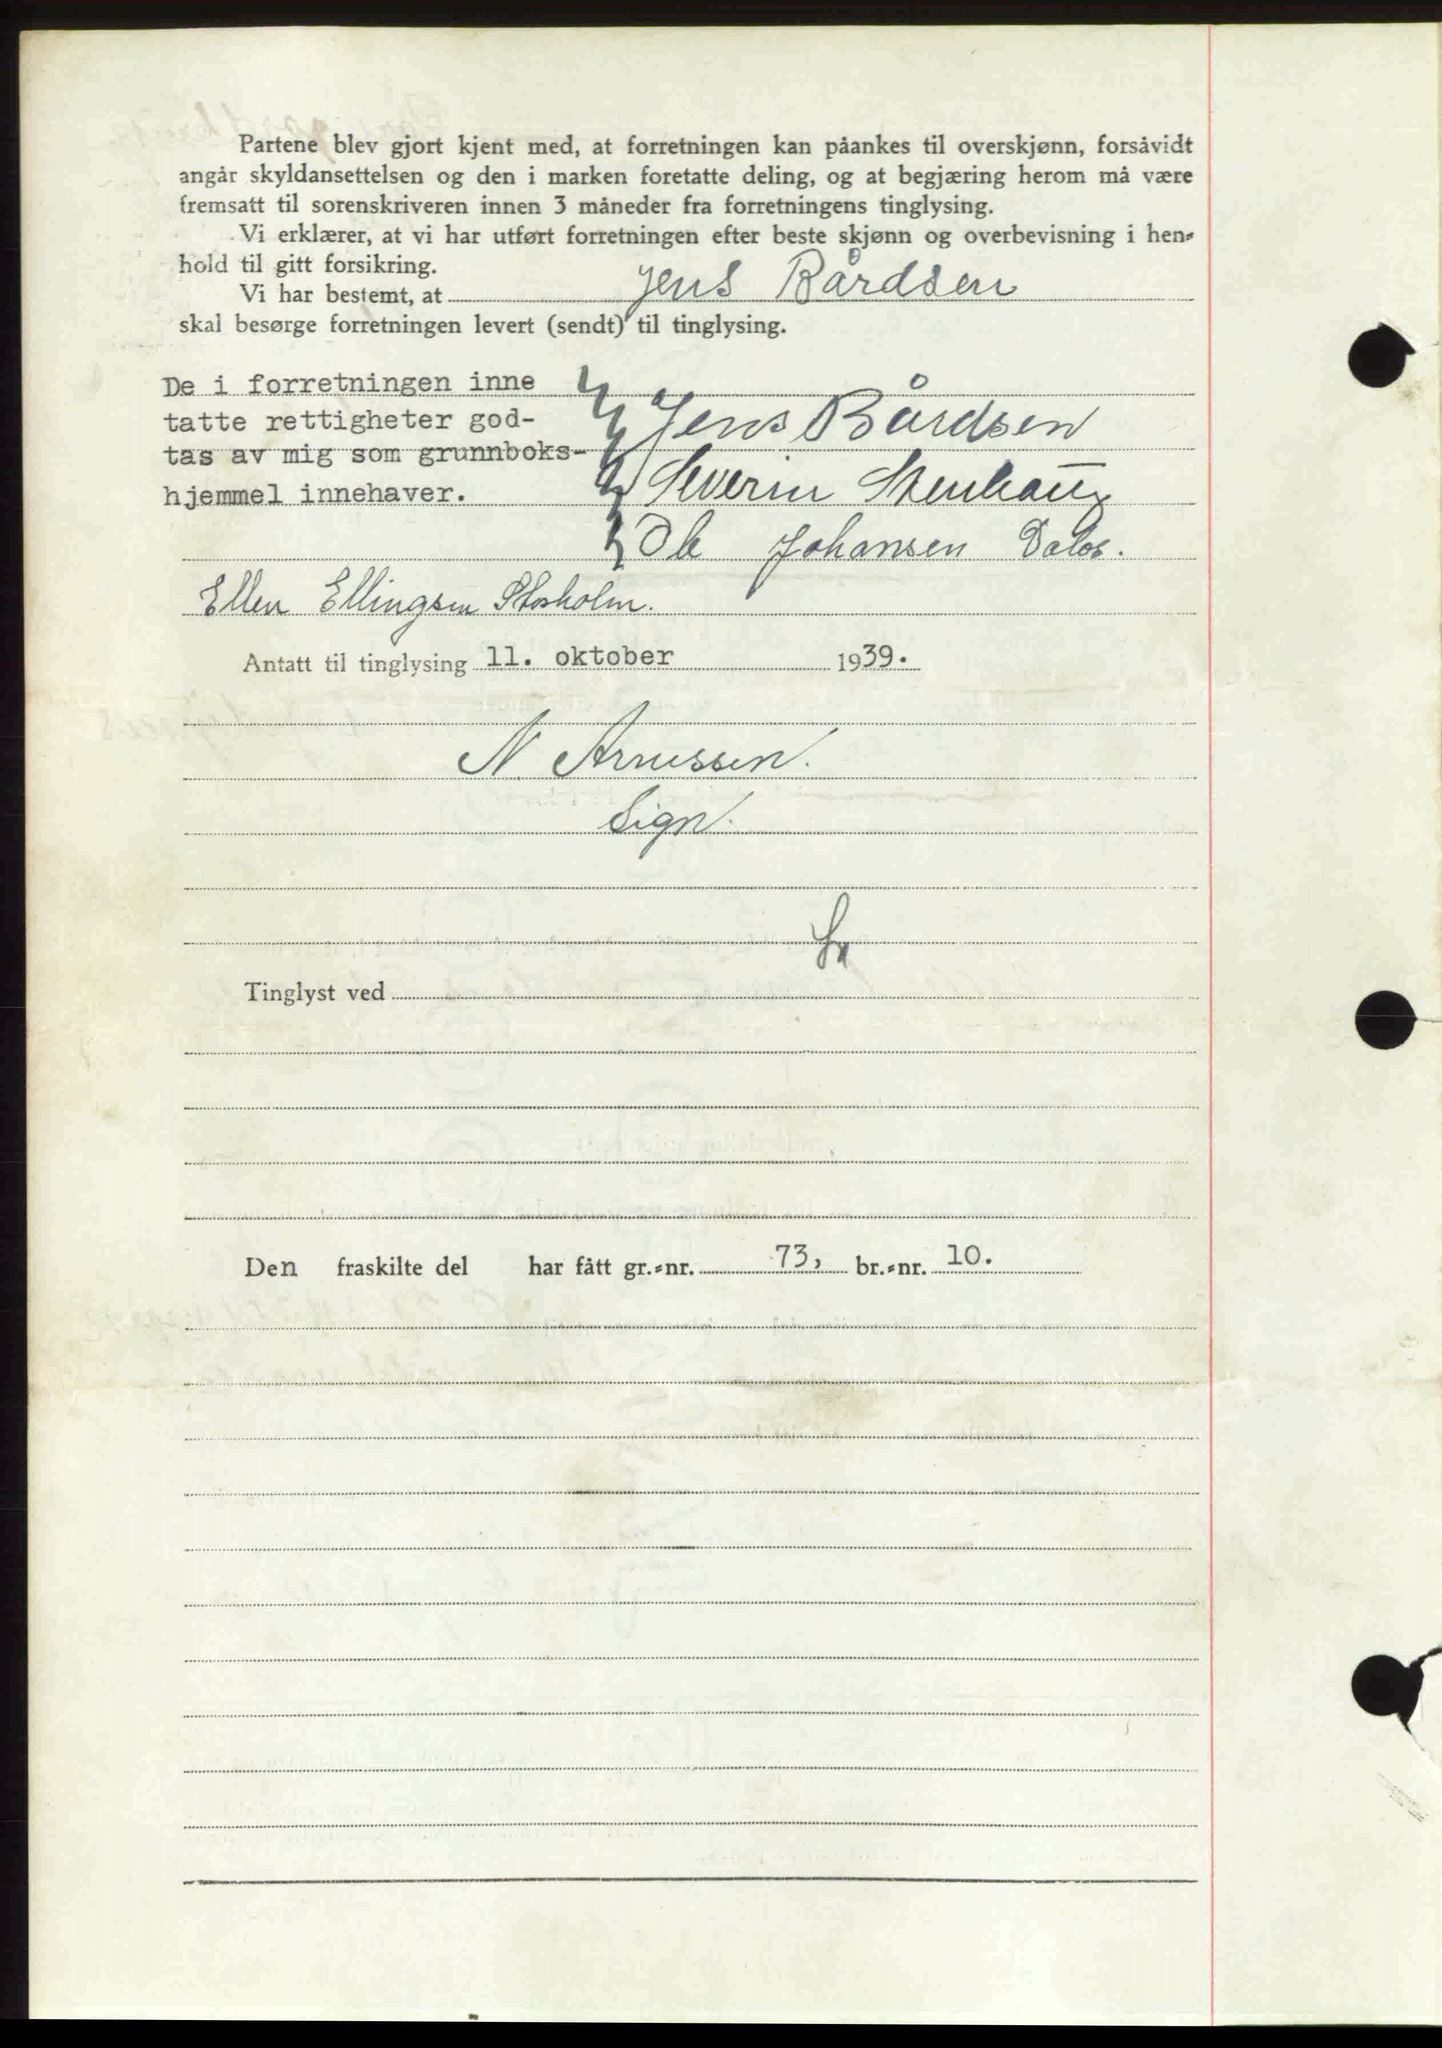 Partene blev gjort kjent med, at forretningen kan påankes til overskjønn, forsåvidt
angår skyldansettelsen og den i marken foretatte deling, og at begjæring herom må være
fremsatt til sorenskriveren innen 3 måneder fra forretningens tinglysing.
Vi erklærer, at vi har utført forretningen efter beste skjønn og overbevisning i hen-
hold til gitt forsikring.
Vi har bestemt, at Jens Bårdsen
skal besørge forretningen levert (sendt) til tinglysing.
De i forretningen inne
tatte rettigheter god-
tas av mig som grunnboks-
hjemmel innehaver.
Jens Bårdsen
Severin
Ole Johansen
Ellen Ellingsen
Antatt til tinglysing 11. oktober 1939.
N. Arnessen.
Sign.
Tinglyst ved
Den fraskilte del har fått gr.-nr. 73, br.-nr. 10.